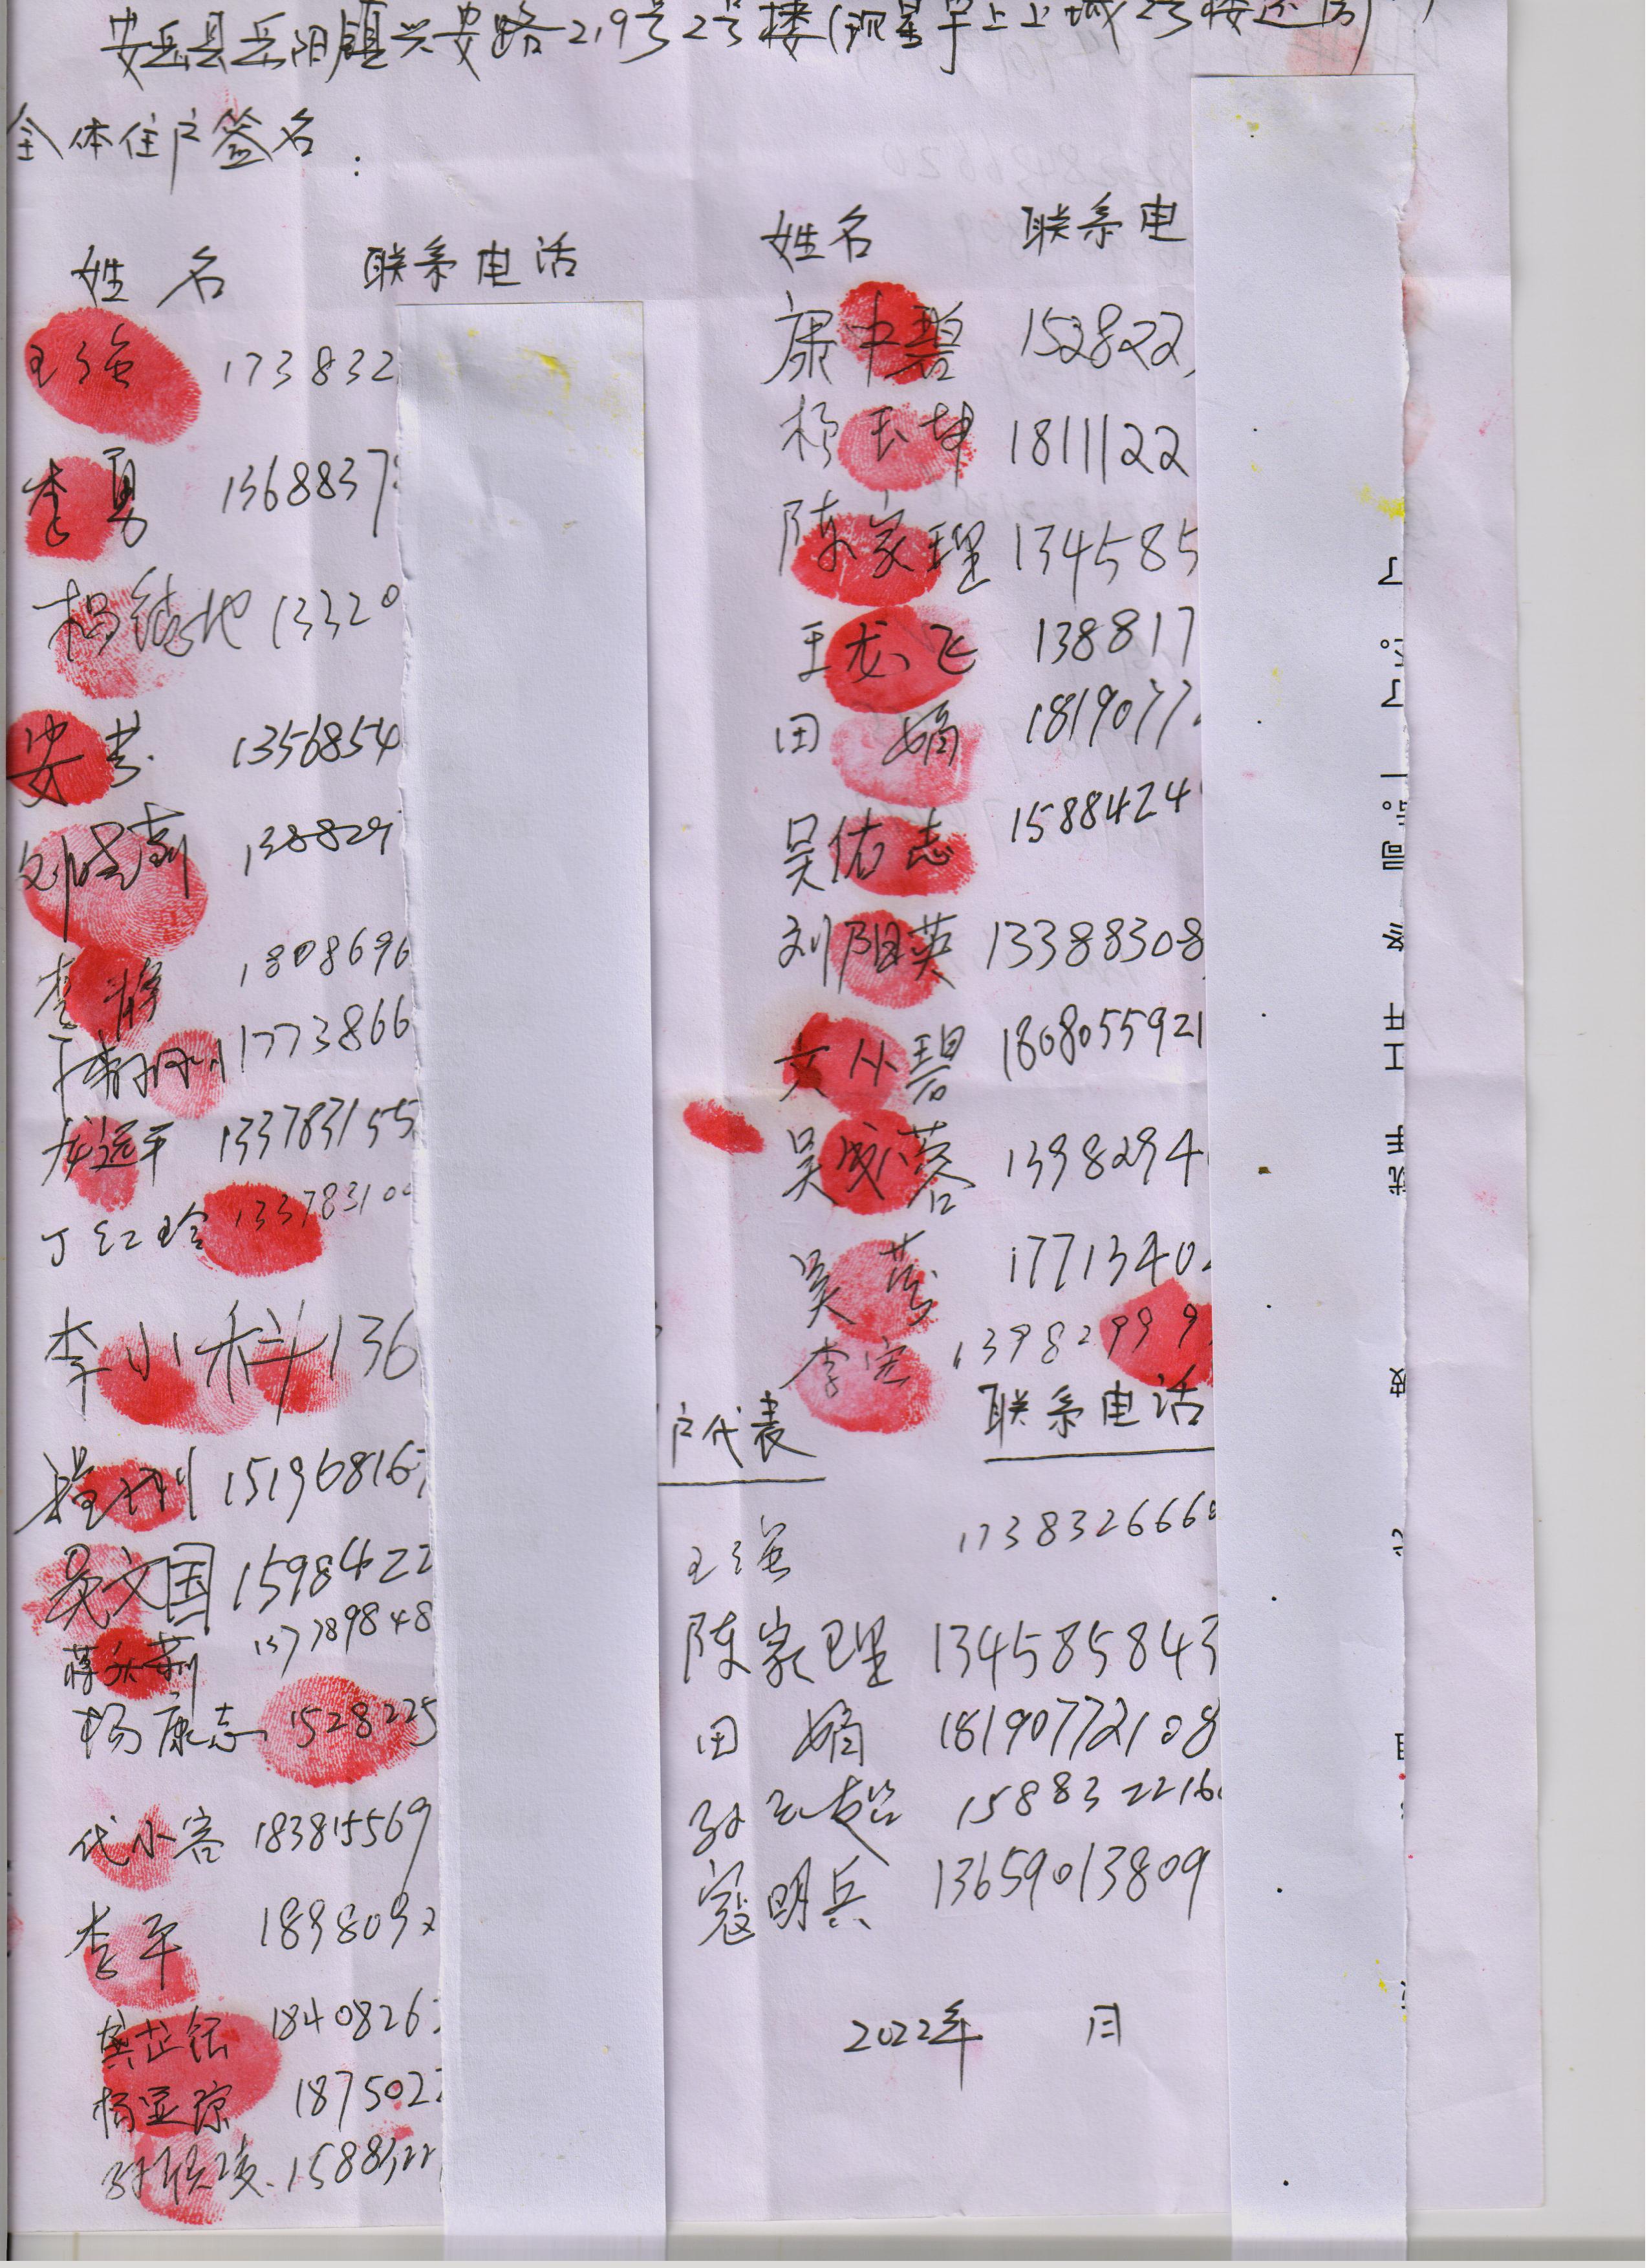 安岳县岳阳镇兴安路219号2号楼(现星宇上上城2号楼还房)
全体住户签名:
姓名 联系电话
王强 173832
李勇 1368837
杨绪地 13320
安芳 1356854
刘晓南 138829
李静 1808696
1773866
龙远平 133783155
丁红玲 13378310
李小科 136
151968167
吴文国 1598422
137789848
杨康志 1528225
代小容 183815569
李平 1898092
1840826
杨亚琼 187502
1588322
姓名 联系电
康中碧 152822
杨玉坤 1811122
陈家理 134585
王龙飞 138817
田嫡 1819077
吴佑志 1588424
刘阳英 13388308
文小碧 1808055921
吴成蓉 1398294
吴芳 17713402
李宏 139829999
户代表 联系电话
王强 1738326660
陈家理 134585843
田嫡 18190772108
孙云超 1588322160
寇明兵 13659013809
2022年 月